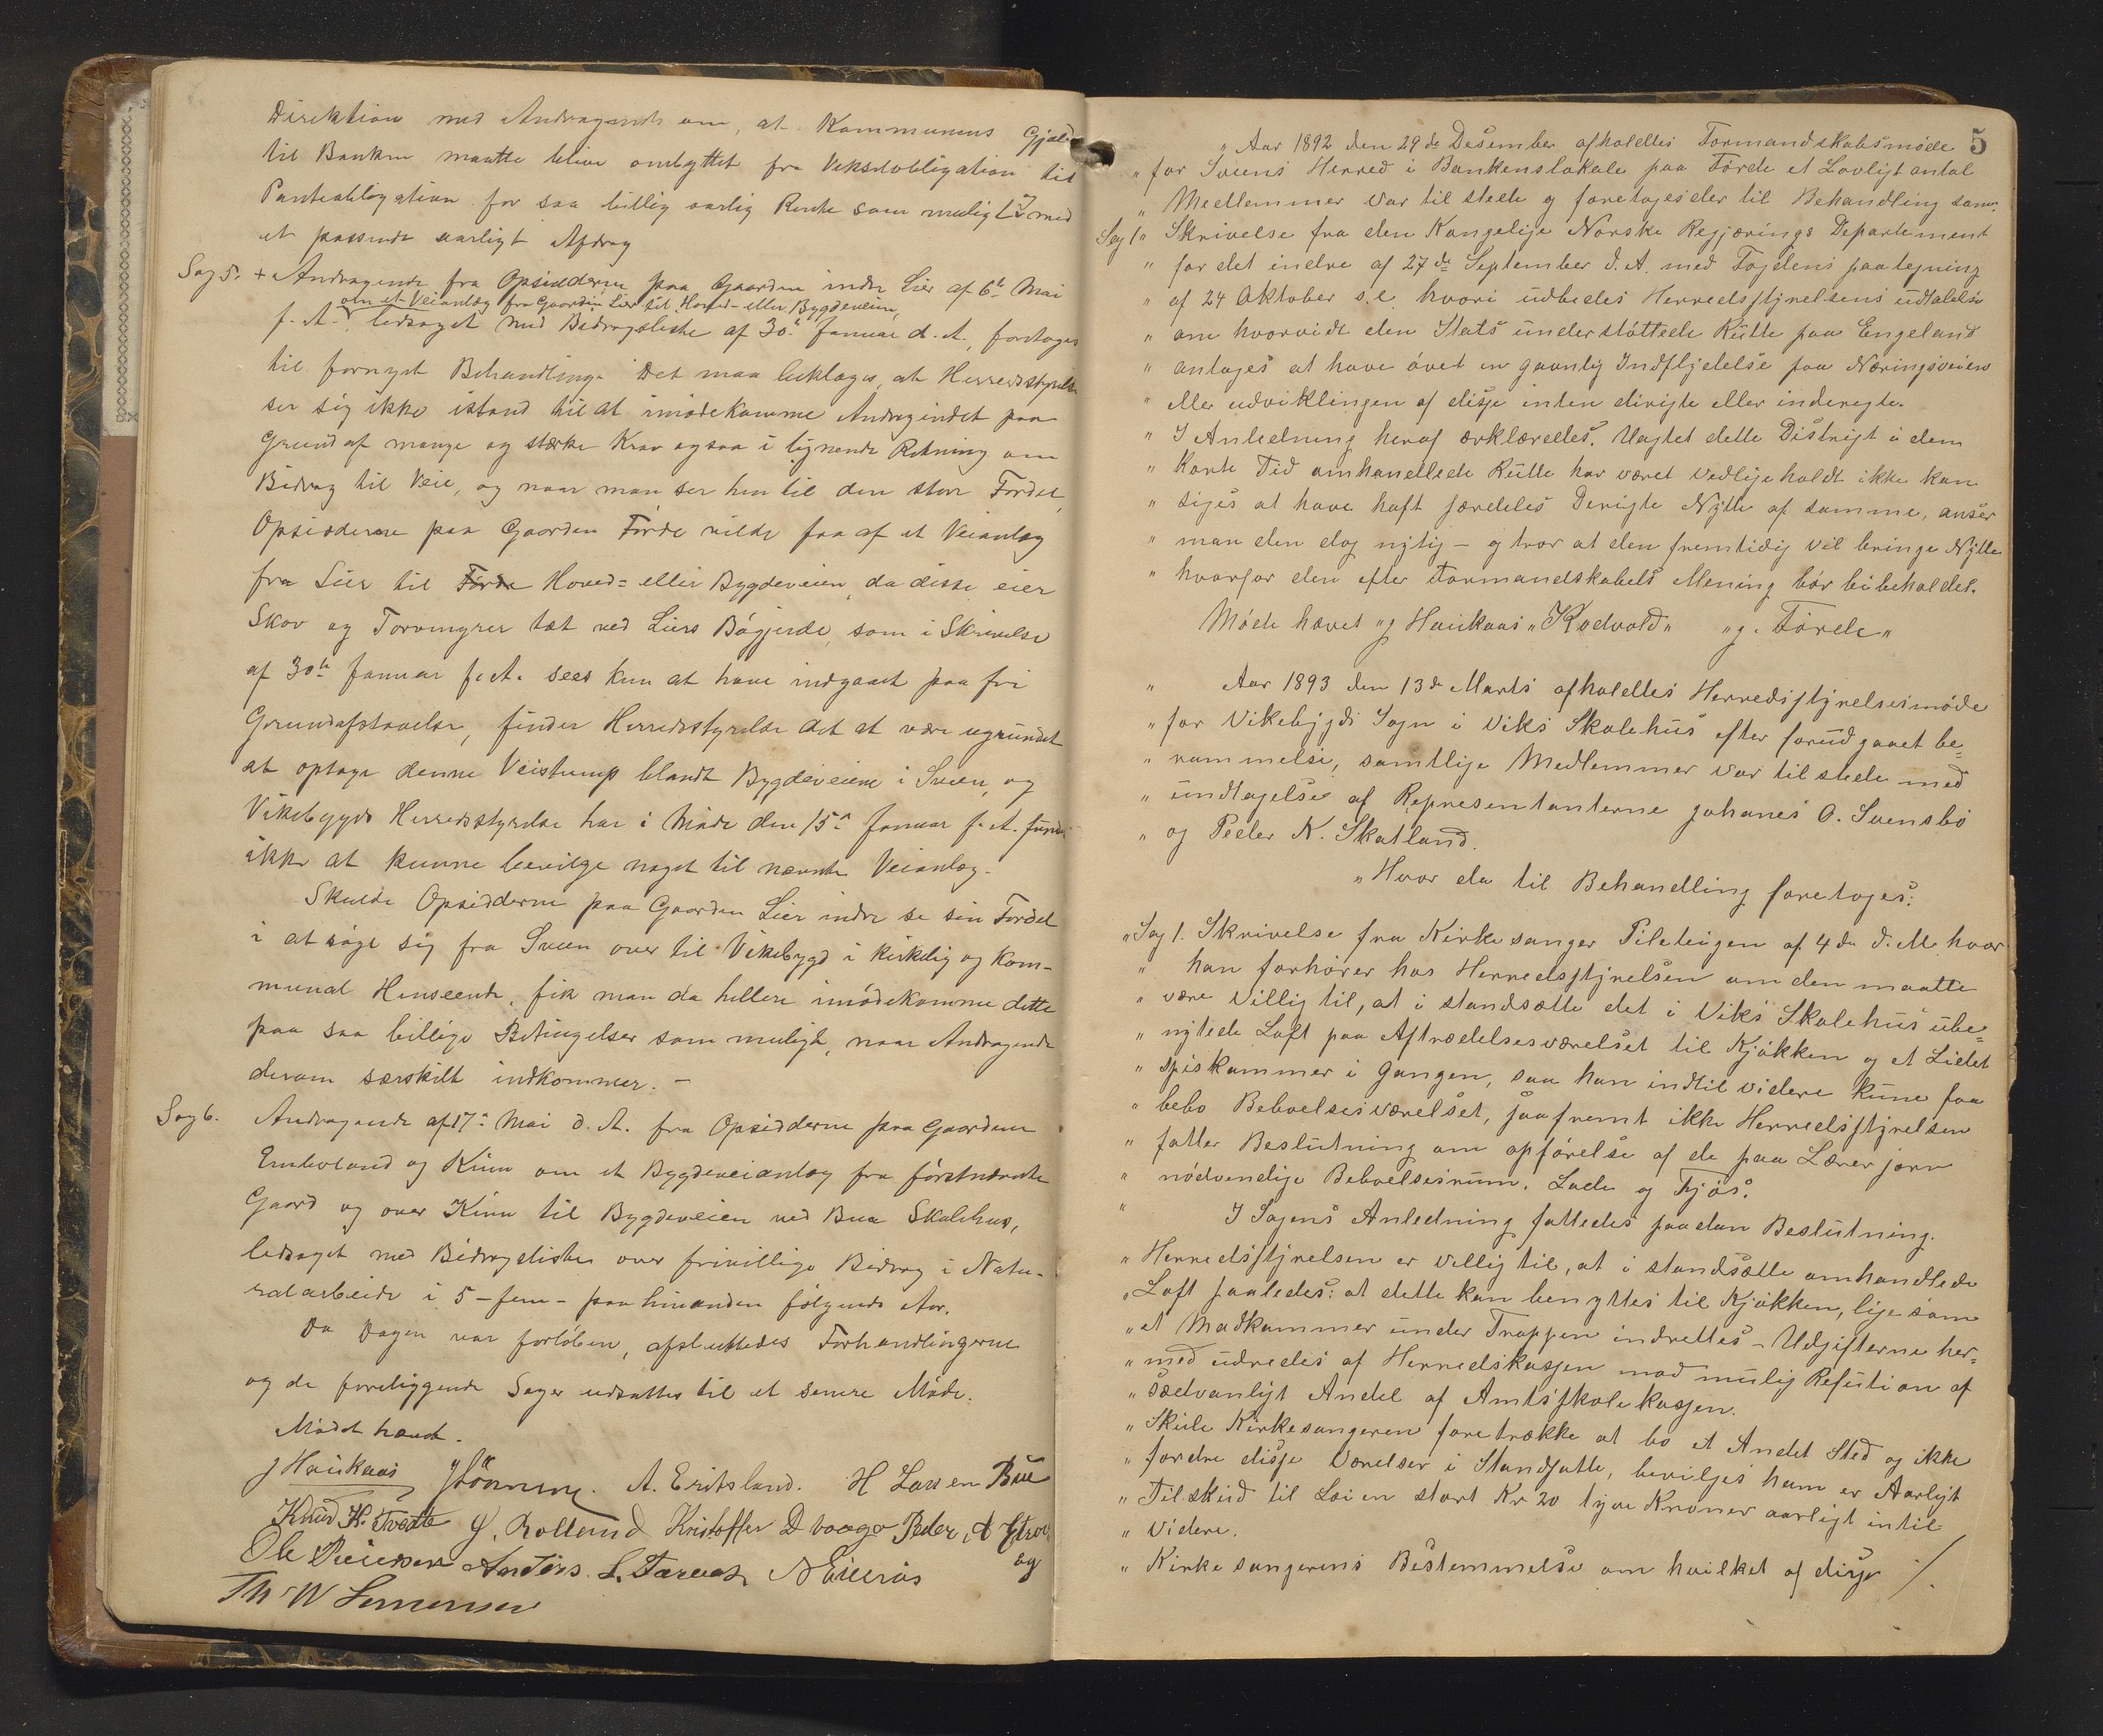 Direktion med Andragende om, at Kommunens Gjæld
til Banken maatte blive ombyttet fra Vekselobligation til
Panteobligation for saa billig aarlig Rente som muligt og med
et passende aarligt Afdrag
Sag 5. + Andragende fra Opsidderne paa Gaarden indre Lier af 6te Mai
om et Veianlæg fra Gaarden Lier til Hoved- eller Bygdeveien,
f. A. ledsaget med Bidragsliste af 30te Januar d. A., foretoges
til fornyet Behandling. Det maa beklages, at Herredsstyrelse
ser sig ikke istand til at imødekomme Andragendet paa
Grund af mange og stærke Krav ogsaa i lignende Retning om
Bidrag til Veie, og naar man ser hen til den store Fordel,
Opsidderne paa Gaarden Førde vilde faa af et Veianlæg
fra Lier til Førde Hoved= eller Bygdeveien, da disse eier
Skov og Torvmyrer tæt ved Liers Bøgjerde, som i Skrivelse
af 30te Januar f. A. sees kun at have indgaaet paa fri
Grundafstaaelse, finder Herredsstyrelse det at være ugrundet
at optage denne Veistump blandt Bygdeveiene i Sveen, og
Vikebygds Herredsstyrelse har i Møde den 15de Januar f. A. fundet
ikke at kunne bevilge noget til nævnte Veianlæg.
Skulde Opsidderne paa Gaarden Lier indre se sin Fordel
i at søge sig fra Sveen over til Vikebygd i kirkelig og kom-
munal Henseende, fik man da hellere imødekomme dette
paa saa billige Betingelser som muligt, naar Andragende
derom særskilt indkommer. -
Sag 6. Andragende af 17de Mai d. A. fra Opsidderne paa Gaardene
Emberland og Kinn om et Bygdeveianlæg fra førstnævnte
Gaard og over Kinn til Bygdeveien ved Bua Skolehus,
ledsaget med Bidragsliste over frivillige Bidrag i Natu-
ralarbeide i 5 - fem - paa hinanden følgende Aar.
Da Dagen var forløben, afsluttedes Forhandlingerne
og de foreliggende Sager udsattes til et senere Møde.
Mødet hævet.
J Haukaas A. Eritsland. H Larsen Bue
Knud H. Tvedte Rolland Kristoffer D Vaage Peder A
Ole Anders. L.
og
5
" Aar 1892 den 29de Desember afholdtes Formandskabsmøde
" for Sveens Herred i Bankenslokale paa Førde et Lovligt antal
" Medlemmer var til stede og foretoges der til Behandling som.
Sag 1 " Skrivelse fra den Kongelige Norske Regjærings Departement
" for det indre af 27de September d. A. med Fogdens paategning
" af 24 Oktober s. e. hvori udbedes Herredsstyrelsens udtalelse
" om hvorvidt den Stats understøttede Rutte paa Engeland
" antages at have øvet en gavnlig Indflydelse paa Næringsveien
" eller udviklingen af disse inten dirigte eller inderegte.
" I Anledning heraf ærklæredes. Uagtet dette Distrigt i dem
" Korte Tid omhandlede Rutte har været Vedligeholdt ikke kan
" siges at have haft færdeles Derigte Nytte af samme, anser
" man den dog nytig - og tror at den fremtidig vil bringe Nytte
" hvorfor den efter Formandskabets Mening bør bibeholdet.
Møde hævet "J Haukaas "K Rødvold" "g. Førde"
" Aar 1893 den 13de Marts afholdtes Herredsstyrelsesmøde
" for Vikebygds Sogn i Viks Skolehus efter forudgaaet be=
" rammelse, samtlige Medlemmer var tilstede med
" undtagelse af Representanterne Johanes O. Svensbø
" og Peder N. Skatland.
" Hvor da til Behandling foretoges:
" Sag 1. Skrivelse fra Kirkesanger Pileteigen af 4de d. M. hvor
" han forhører hos Herredsstyrelsen om den maatte
" være Villig til, at i standsætte det i Viks Skolehus ube=
" nytede Loft paa Aftrædelsesværelset til Kjøkken og et Lidet
" spiskammer i Gangen, saa han indtil videre kune faa
" bebo Beboelsesværelset, saafremt ikke Herredsstyrelsen
" fatter Beslutning om opførelse af de paa Lærerjorn
" nødvendige Beboelsesrum. Lade og Fjøs.
" I Sagens Anledning fattedes saadan Beslutning.
" Herredsstyrelsen er villig til, at i standsætte omhandlede
" Loft saaledes: at dette kan benyttes til Kjøkken, ligesom
" et Madkammer under Trappen indrettes - Udgifterne her=
" med udredes af Herredskassen mod mulig Refution af
" sædvanligt Andel af Amtsskolekassen.
" Skule Kirkesangeren foretrække at bo et Andet Sted og ikke
" fordre disse Værelser i Standsatte, bevilges ham er Aarligt
" Tilskud til Leien stort Kr 20 tyve Kroner aarligt intil
" Videre.
" Kirkesangerens Bestemmelse om hvilket af disse ./.